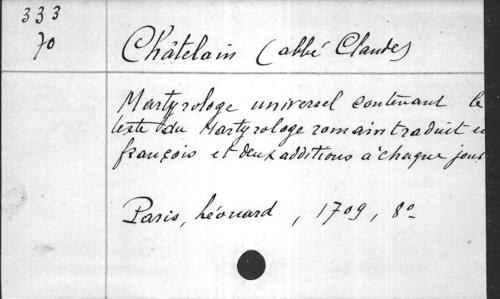 333
70
Châtelain (abbé Claude)
Martyrologe universel contenant le
texte du Martyrologe romain traduit en
françois et deux additions à chaque jour
Paris, Léonard, 1709, 8º